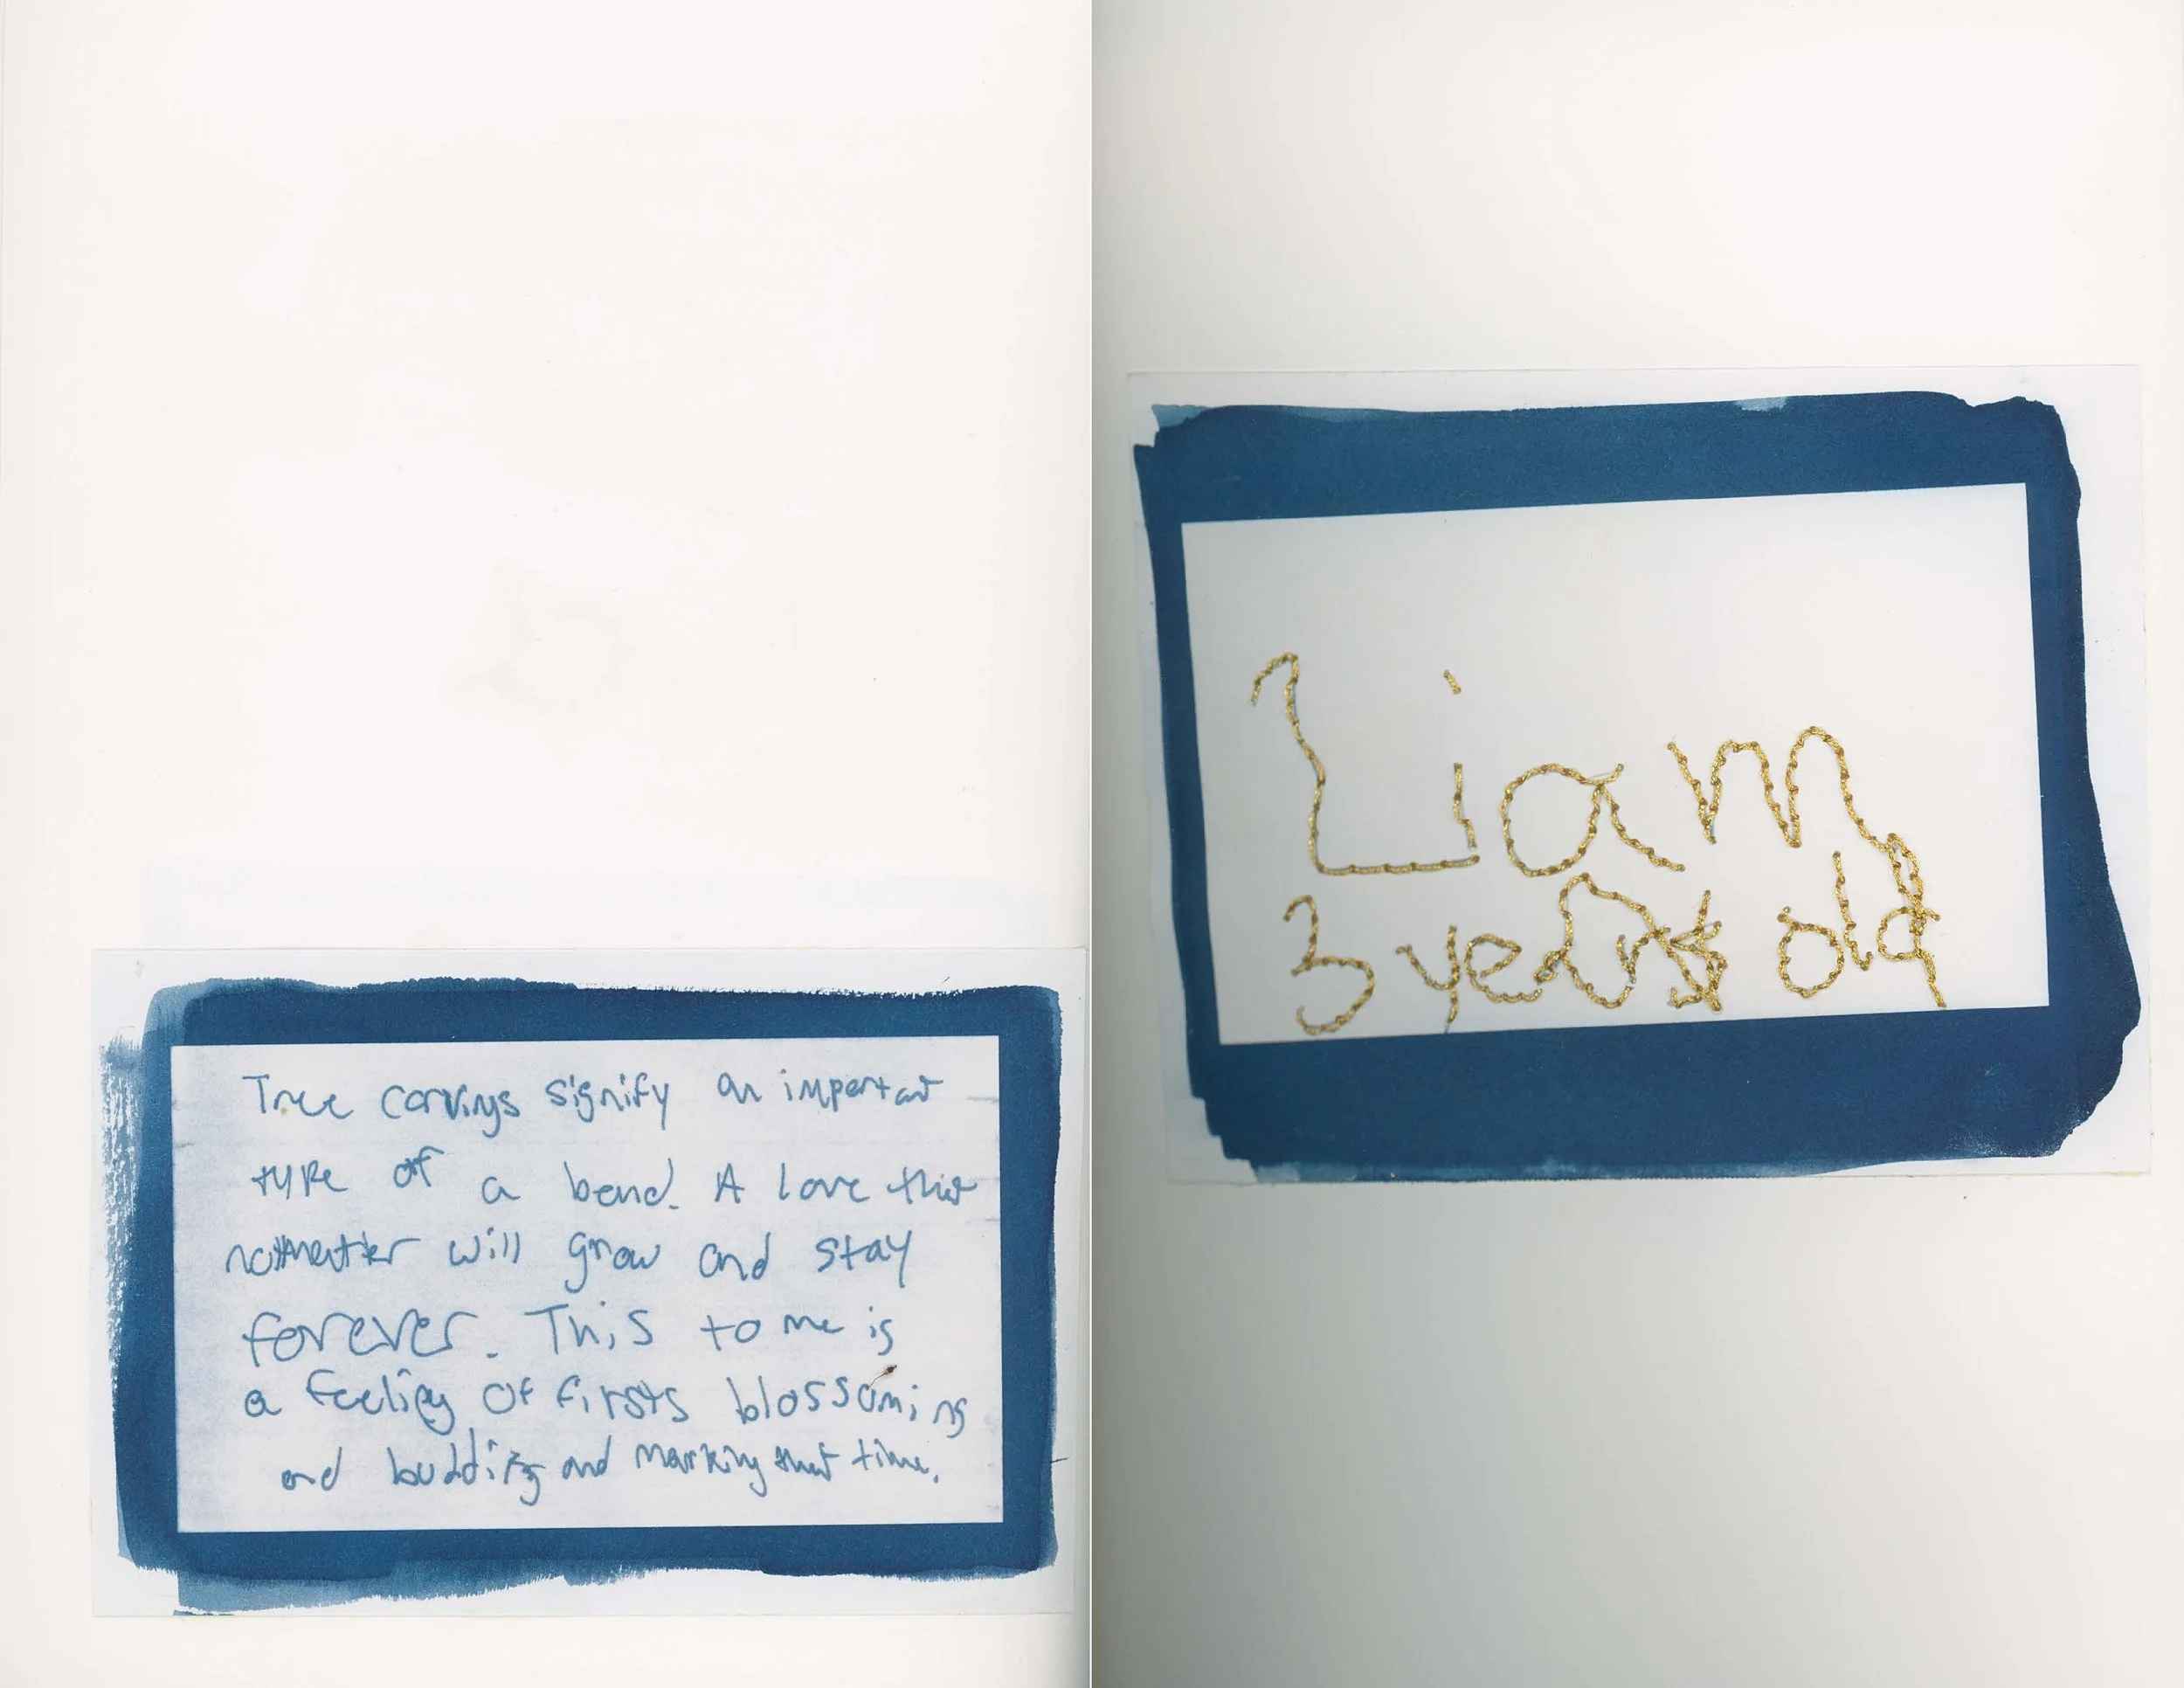 Tree carvings signify an important
type of a bond. A love that
nomatter will grow and stay
forever. This to me is
a feeling of firsts blossoming
and budding and marking that time.
Liam
3 years old